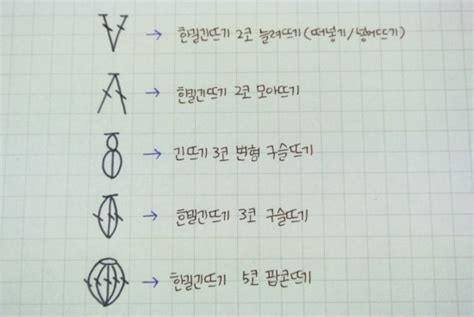 → 한길긴뜨기 2코 늘려뜨기(떠넣기/넣어뜨기)
→ 한길긴뜨기 2코 모아뜨기
→ 긴뜨기 3코 변형 구슬뜨기
→ 한길긴뜨기 3코 구슬뜨기
→ 한길긴뜨기 5코 팝콘뜨기